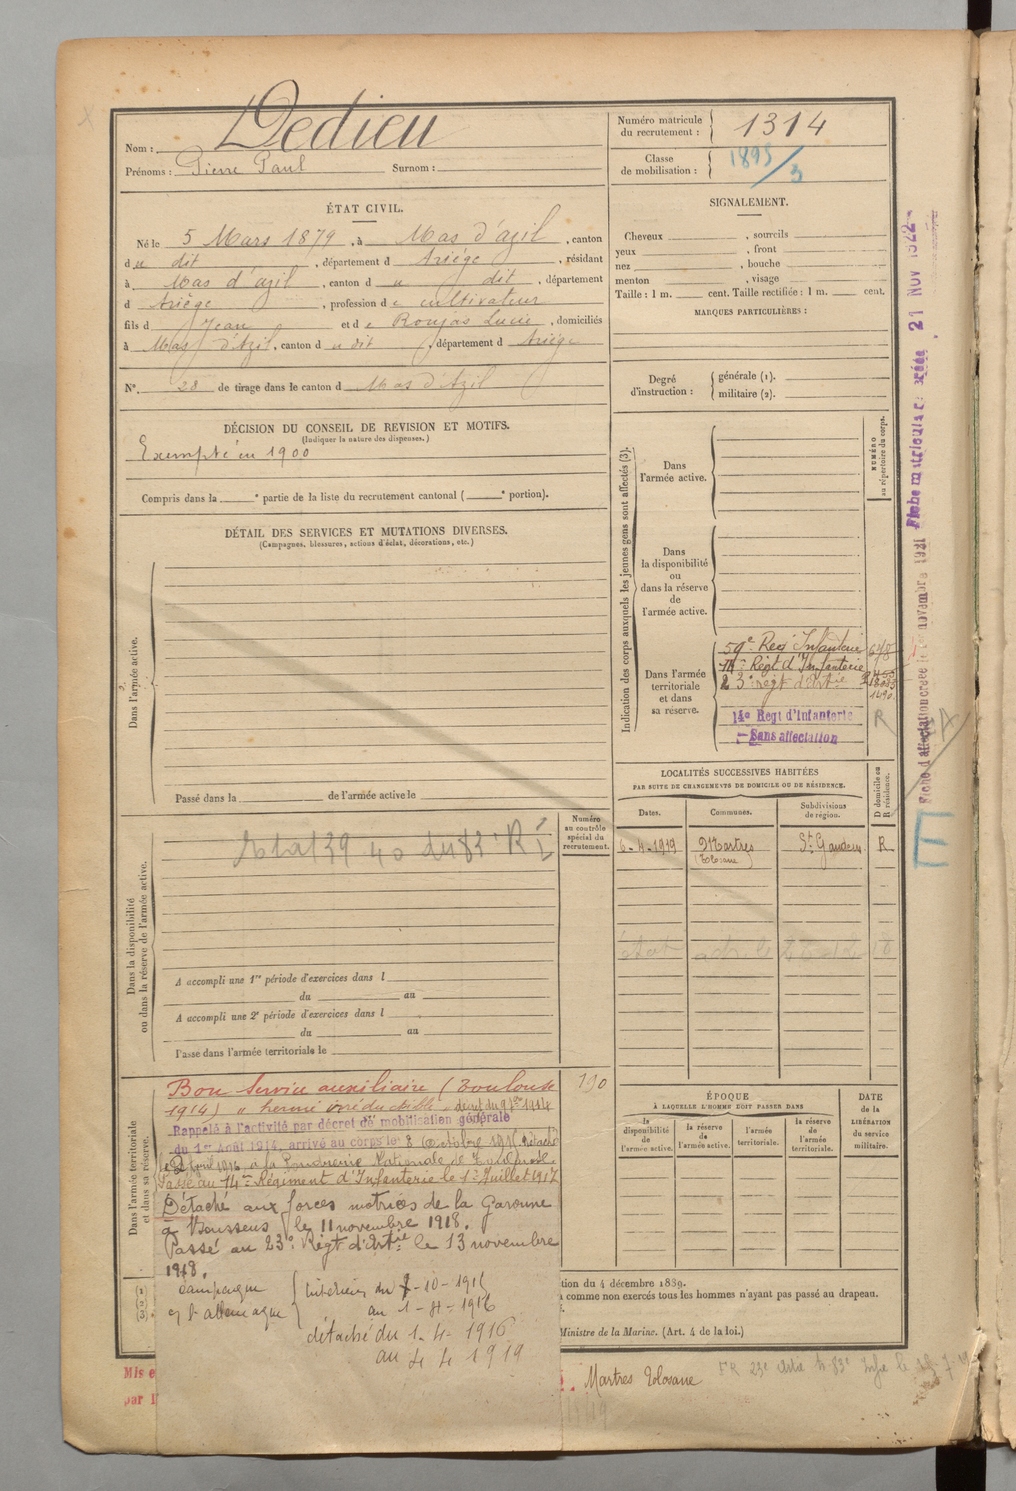 Nom : Dedieu
Prénoms : Pierre Paul Surnom :
ÉTAT CIVIL.
Né le 5 Mars 1879, à Mas d'azil, canton
du dit, département d Ariége, résidant
à Mas d'azil, canton d u dit, département
d Ariège, profession d e cultivateur
fils d Jean et d e Roujas Lucie, domiciliés
à Mas d'Azil, canton d u dit, département d Ariége
N° 28 de tirage dans le canton d Mas d'Azil
DÉCISION DU CONSEIL DE REVISION ET MOTIFS.
(Indiquer la nature des dispenses.)
Exempté en 1900
Compris dans la e partie de la liste du recrutement cantonal ( e portion).
DÉTAIL DES SERVICES ET MUTATIONS DIVERSES.
(Campagnes, blessures, actions d'éclat, décorations, etc.)
Dans l'armée active.
Passé dans la de l'armée active le
Dans la disponibilité
ou dans la réserve de l'armée active.
Numéro
au contrôle
spécial du
recrutement.
A accompli une 1re période d'exercices dans l
du au
A accompli une 2e période d'exercices dans l
du au
Passé dans l'armée territoriale le
Dans l'armée territoriale
et dans sa réserve.
190
Bon Service auxiliaire (Toulouse
1914) " hernie irréductible
Rappelé à l'activité par décret de mobilisation générale
du 1er Août 1914, arrivé au corps le 8 Octobre 1915 Détaché
à la Poudrerie Nationale de Toulouse.
Passé au 14me Régiment d'Infanterie le 1er Juillet 1917
Détaché aux forces motrices de la Garonne
à Boussens le 11 novembre 1918.
Passé au 23e Régt d'Artie le 13 novembre
1918.
Campagne
c/ l'allemagne
Intérieur du 7-10-1915
au 1-4-1916
détaché du 1-4-1916
au 4 4 1919
Numéro matricule
du recrutement : 1314
Classe
de mobilisation : 1895/3
SIGNALEMENT.
Cheveux , sourcils
yeux , front
nez , bouche
menton , visage
Taille : 1 m. cent. Taille rectifiée : 1 m. cent.
MARQUES PARTICULIÈRES :
Degré
d'instruction :
générale (1).
militaire (2).
Indication des corps auxquels les jeunes gens sont affectés (3).
NUMÉRO
au répertoire du corps.
Dans
l'armée active.
Dans
la disponibilité
ou
dans la réserve
de
l'armée active.
Dans l'armée
territoriale
et dans
sa réserve.
59e Reg Infanterie 678
14e Régt d'Infanterie
23e regt d'Artie
1490
14e Regt d'Infanterie R
Sans affectation
LOCALITÉS SUCCESSIVES HABITÉES
PAR SUITE DE CHANGEMENTS DE DOMICILE OU DE RÉSIDENCE.
Dates. Communes. Subdivisions
de région. D domicile ou
R résidence.
6-4-1919 Martres St Gaudens R
ÉPOQUE
À LAQUELLE L'HOMME DOIT PASSER DANS
la
disponibilité
de
l'armée active.
la réserve
de
l'armée active.
l'armée
territoriale.
la réserve
de
l'armée
territoriale.
DATE
de la
LIBÉRATION
du service
militaire.
(1)
(2)
(3)
tion du 4 décembre 1889.
comme non exercés tous les hommes n'ayant pas passé au drapeau.
Ministre de la Marine. (Art. 4 de la loi.)
Mis e
par l'
Martres Tolosane
Fiche d'affectation créée le novembre 1921
Fiche matricule créée 21 NOV 1922